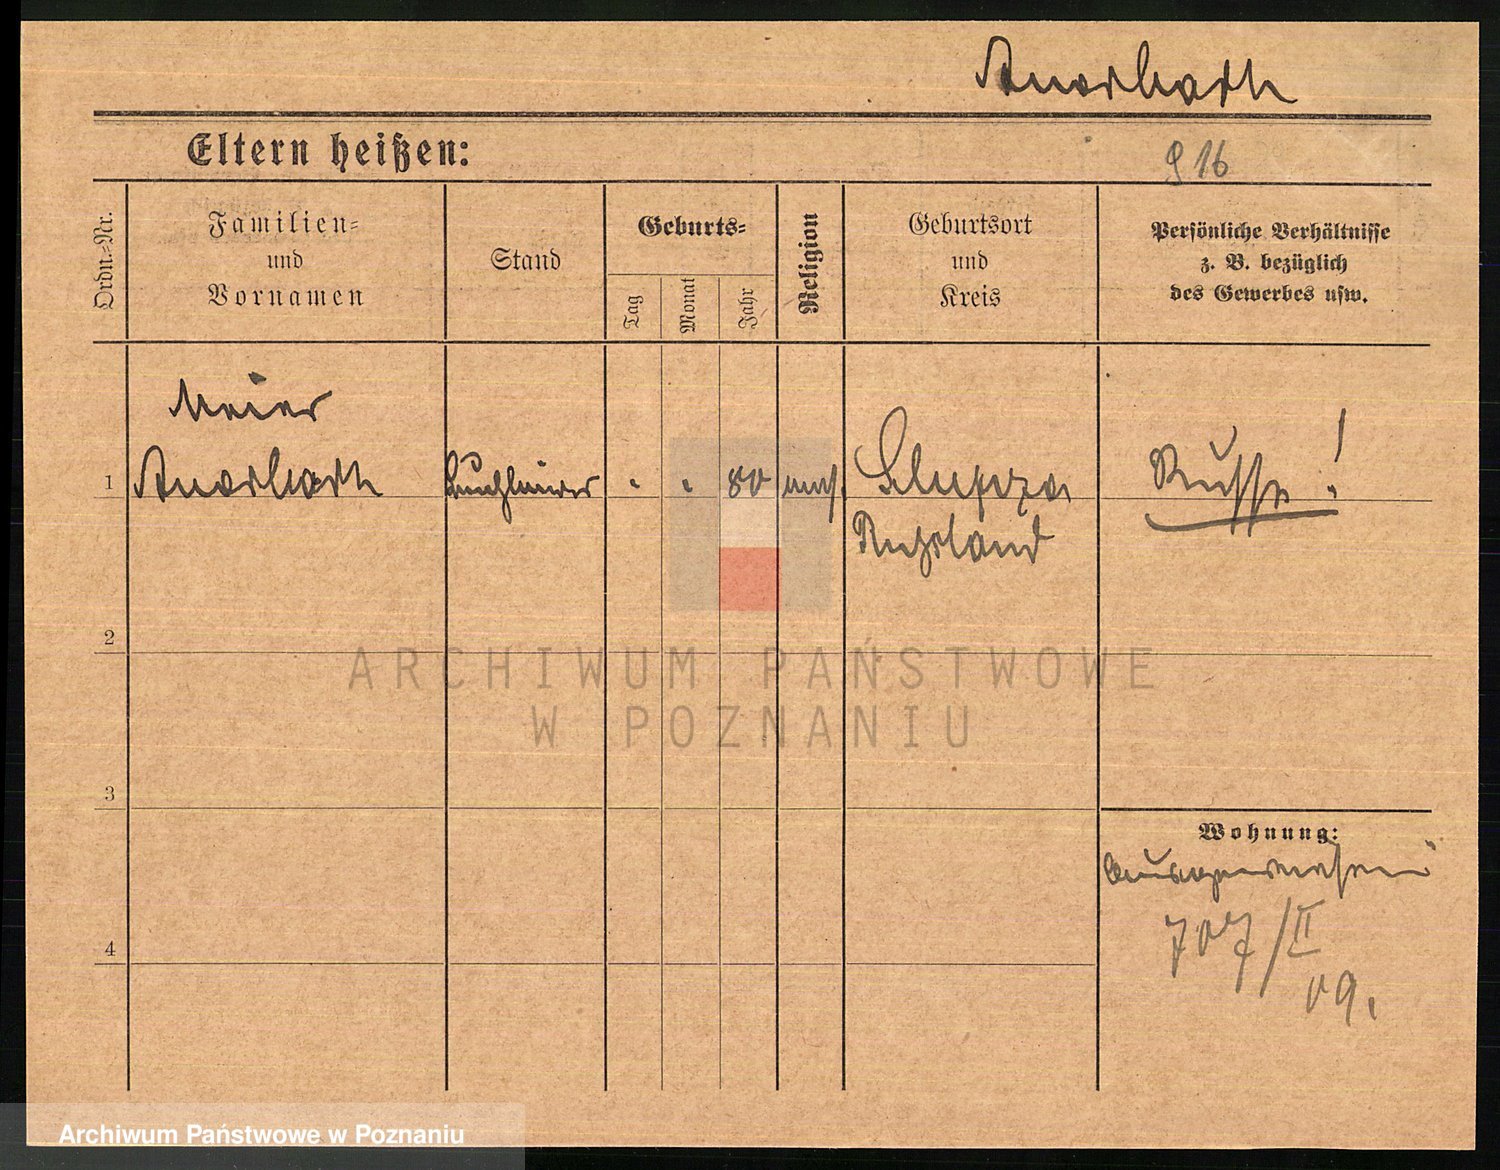 Auerbach
Eltern heißen:
916
Ordn.-Nr.
Familien-
und
Vornamen
Stand
Geburts-
Tag
Monat
Jahr
Religion
Geburtsort
und
Kreis
Persönliche Verhältnisse
z. B. bezüglich
des Gewerbes usw.
Meier
1
Auerbach
80
mos.
Slupza
Russe!
Russland
2
ARCHIWUM PAŃSTWOWE
W POZNANIU
3
Wohnung:
ausgewiesen
4
707/II
09.
Archiwum Państwowe w Poznaniu